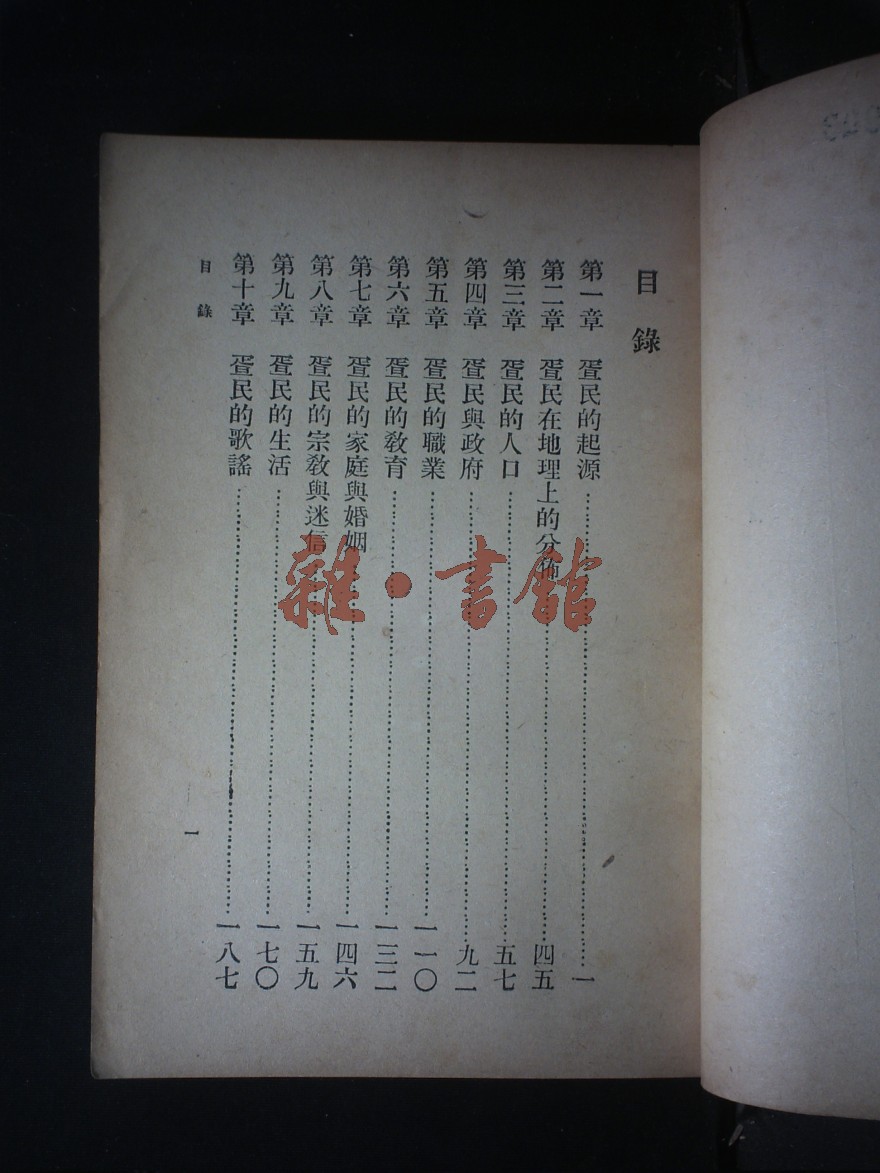 目錄
第一章 疍民的起源……一
第二章 疍民在地理上的分佈……四五
第三章 疍民的人口……五七
第四章 疍民與政府……九二
第五章 疍民的職業……一一〇
第六章 疍民的教育……一三二
第七章 疍民的家庭與婚姻……一四六
第八章 疍民的宗教與迷信……一五九
第九章 疍民的生活……一七〇
第十章 疍民的歌謠……一八七
目錄
一
雜·書館